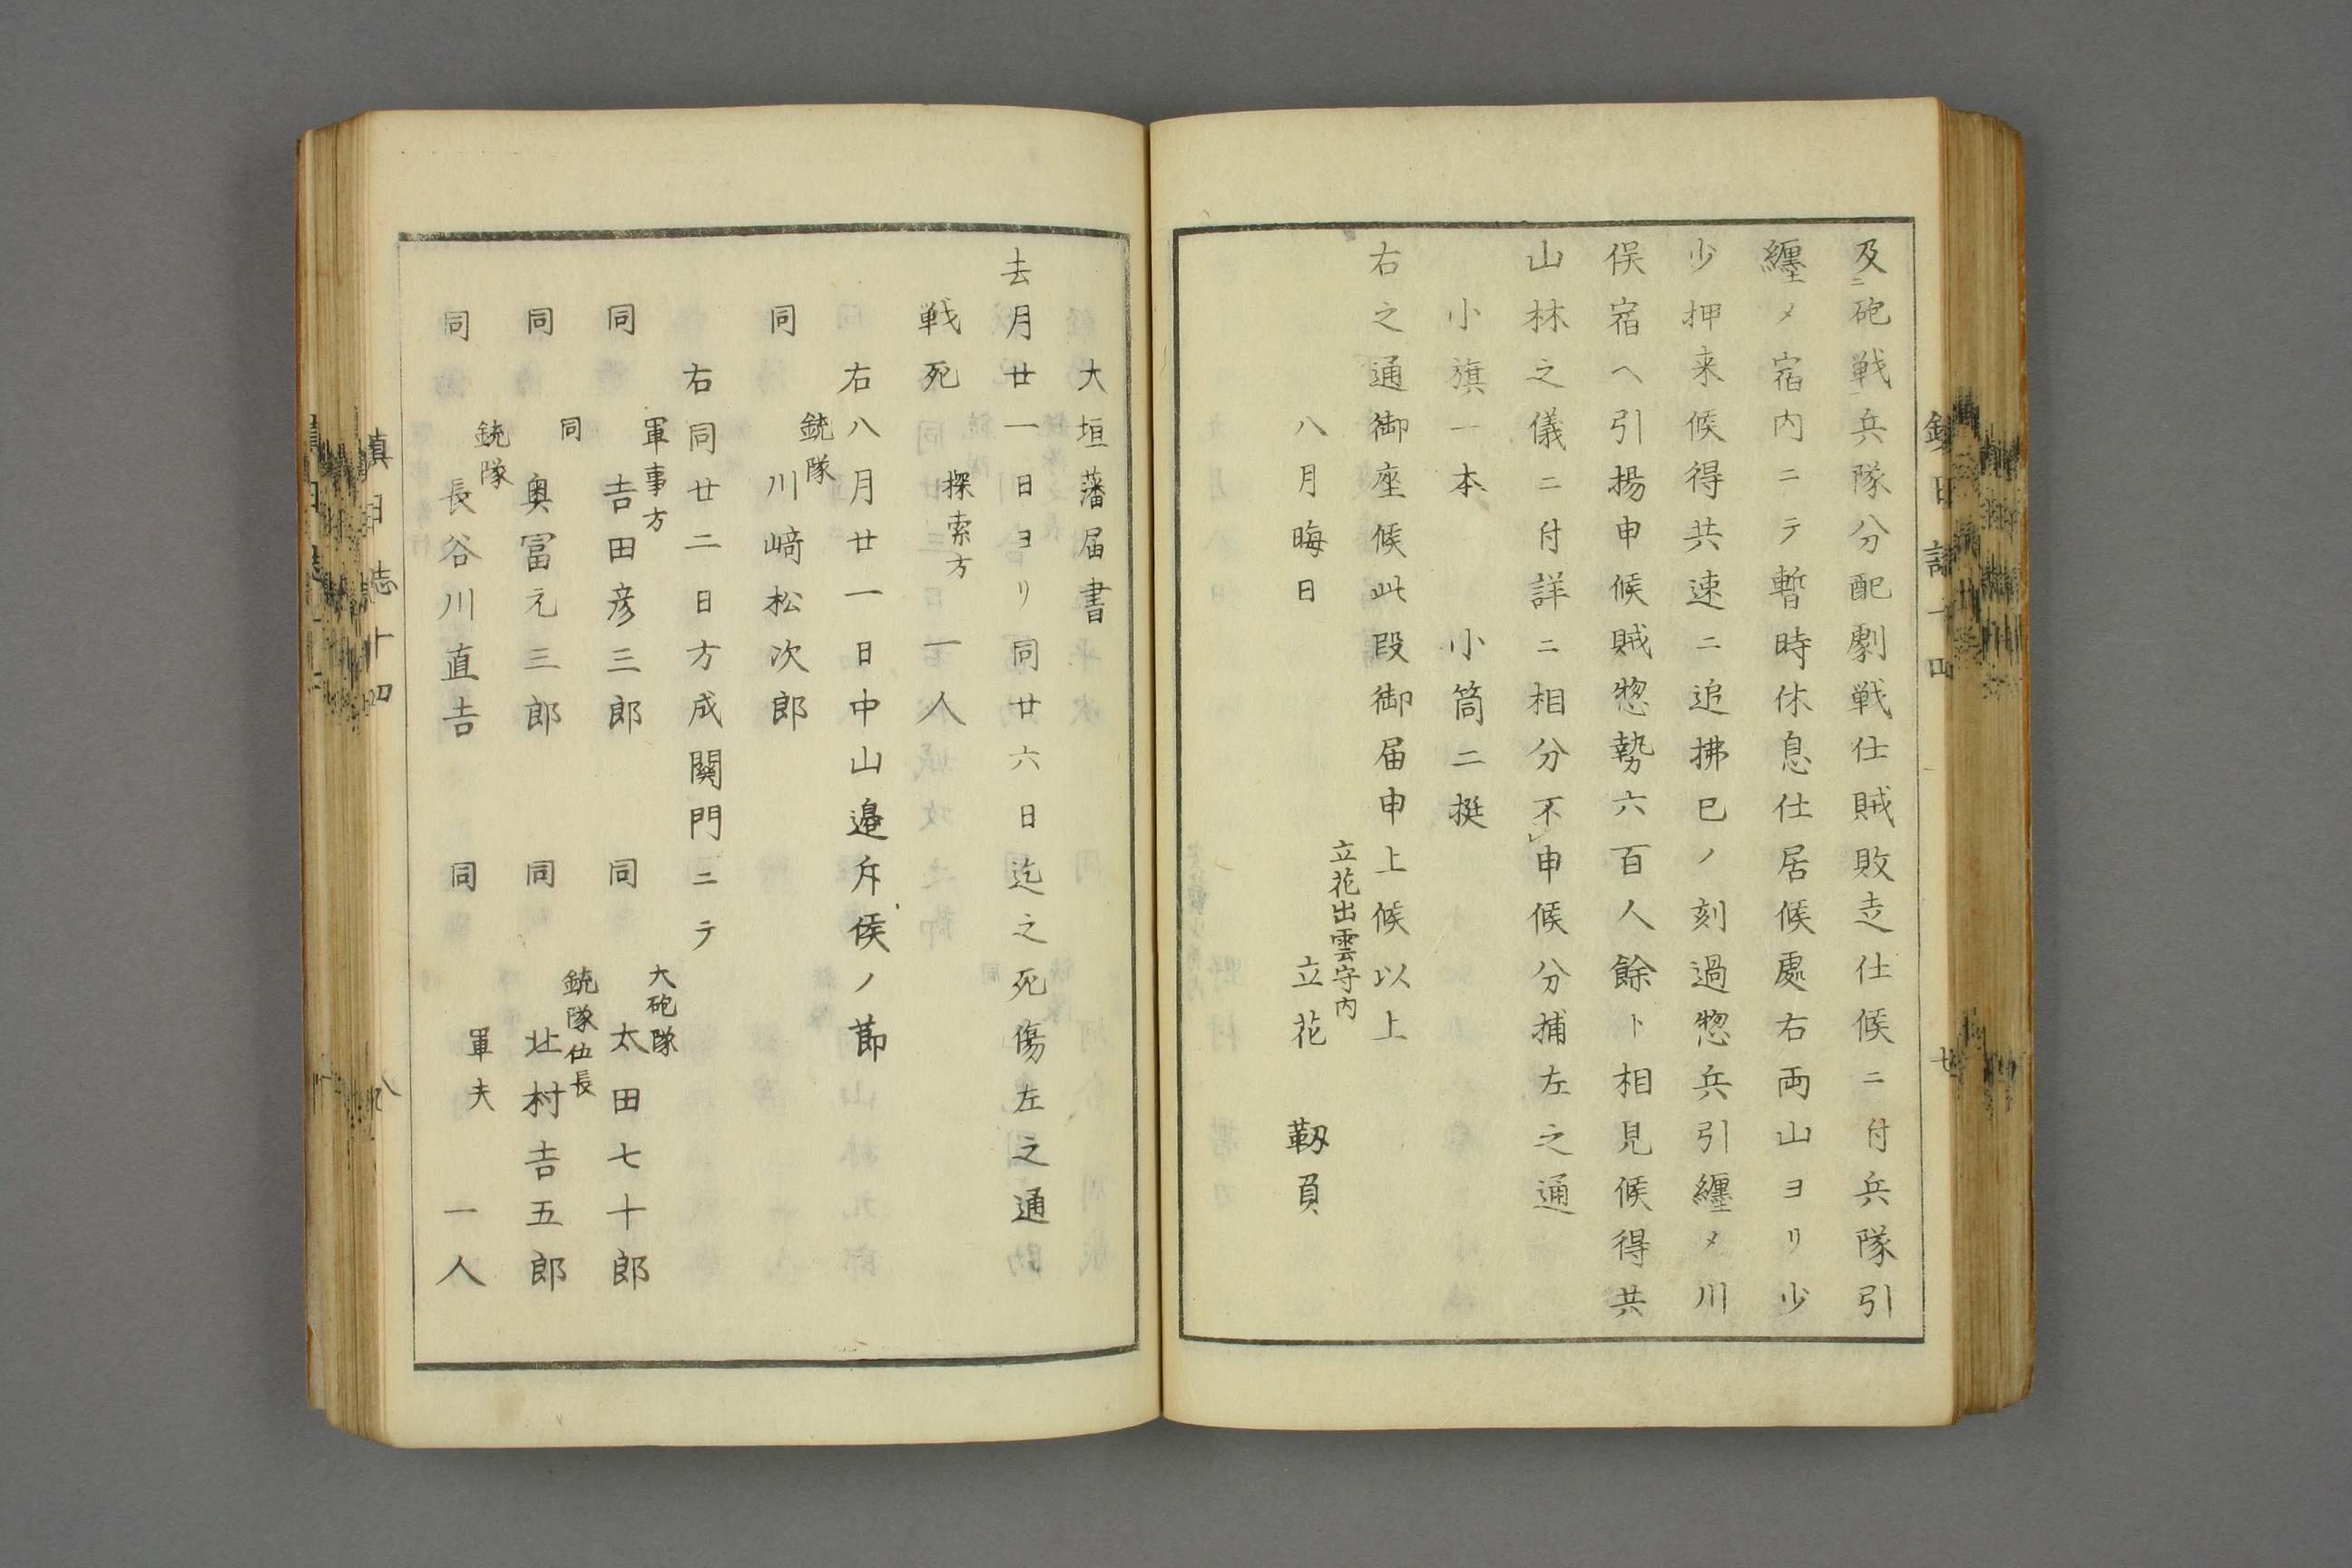 及ニ砲戦兵隊分配劇戦仕賊敗走仕候ニ付兵隊引
纒メ宿内ニテ暫時休息仕居候處右両山ヨリ少
少押来候得共速ニ追拂巳ノ刻過惣兵引纒メ川
俣宿ヘ引揚申候賊惣勢六百人餘ト相見候得共
山林之儀ニ付詳ニ相分不レ申候分捕左之通
小旗一本　小筒二挺
右之通御座候此段御届申上候以上
立花出雲守内
八月晦日　立花　靱負
大垣藩届書
去月廿一日ヨリ同廿六日迄之死傷左之通
戦死　探索方　一人
右八月廿一日中山邉斥候ノ節
同　銃隊　川﨑松次郎
右同廿二日方成關門ニテ
同　軍事方　吉田彦三郎　同　大砲隊　太田七十郎
同　同　奥冨元三郎　同　銃隊伍長　北村吉五郎
同　銃隊　長谷川直吉　同　軍夫　一人
鎮日志十四